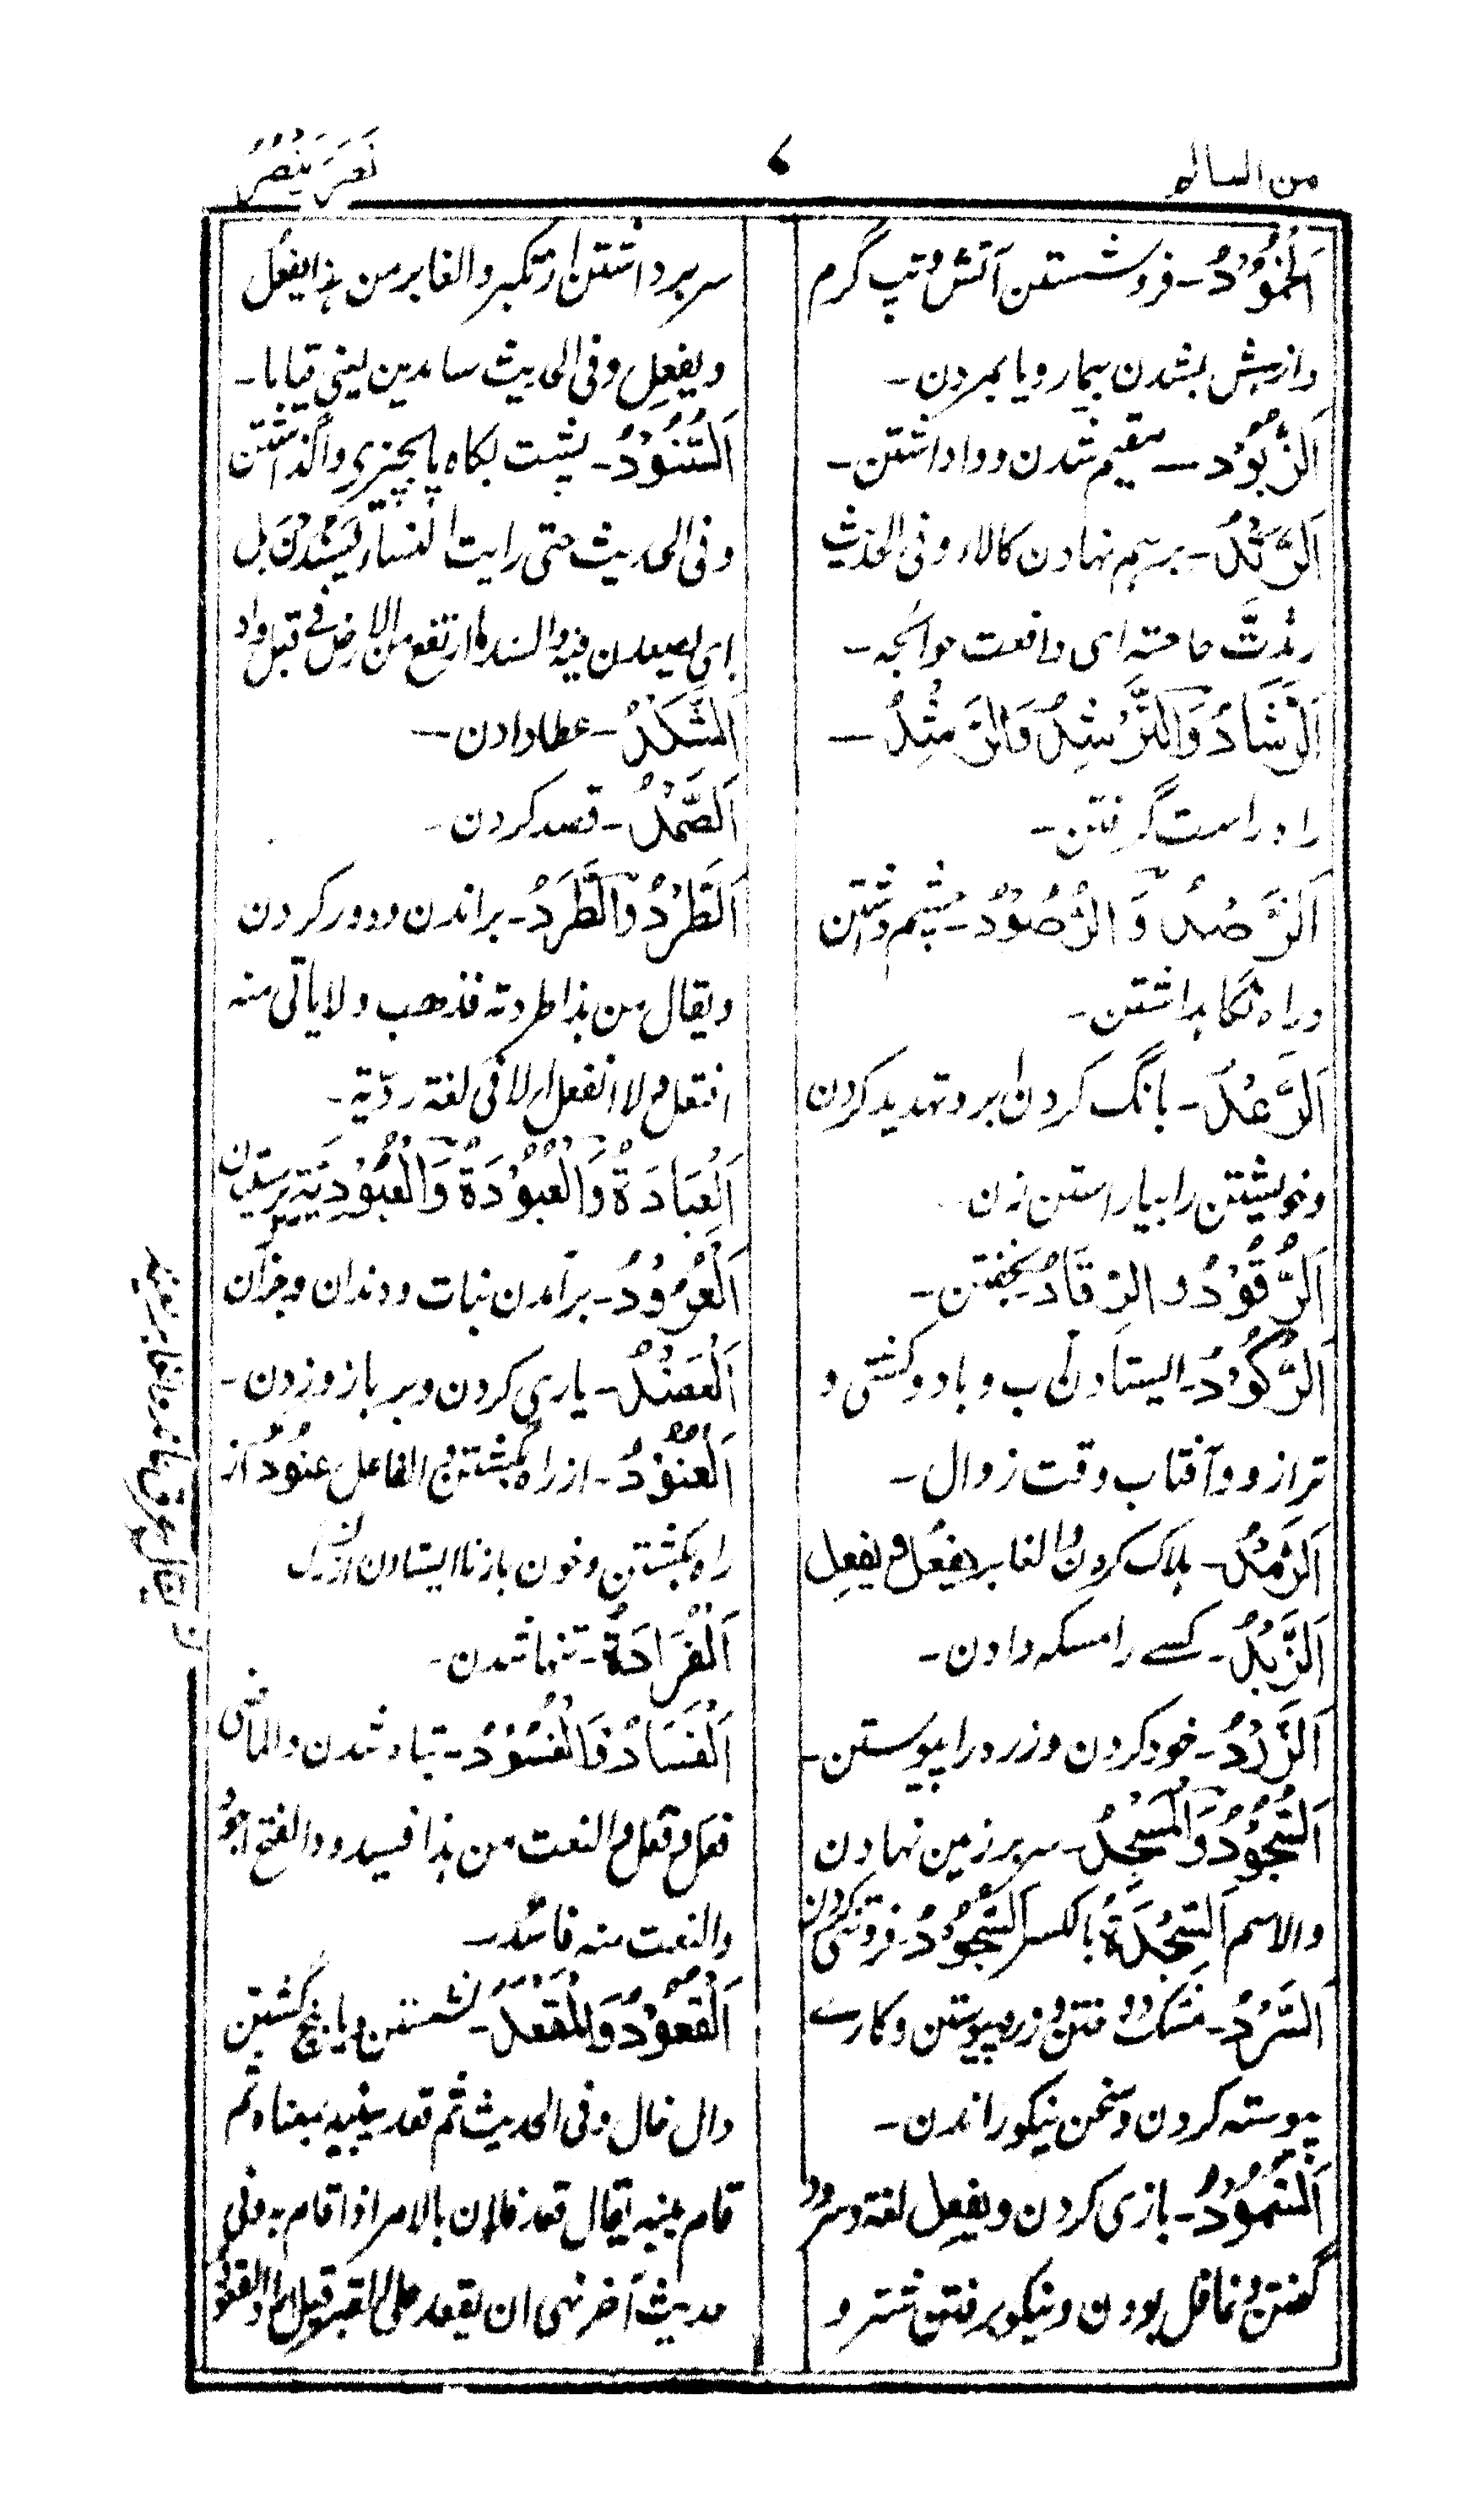 من السالم
۶
نَصَرَ يَنْصُرُ
اَلْخُمُوْدُ - فرو نشستن آتش و تپ گرم
و از هش بشدن بیمار و یا بمردن -
اَلرُّبُوْد - مقیم شدن و وا داشتن -
اَلرَّثْدُ - برهم نهادن کالاء و فی الحدیث
رثدتَّ حاجته ای دافعت حوائجه -
اَلرَّشَادُ وَالرُّشْدُ وَالرَّشْدُ -
راه راست گرفتن -
اَلرَّصْدُ وَ الرُّصُوْدُ - چشم داشتن
و راه نگاهداشتن -
اَلرَّعْدُ - بانگ کردن ابر و تهدید کردن
و خویشتن را بیاراستن زن
اَلرُّقُوْدُ و الرقَادُ بخفتن -
اَلرُّكُوْدُ - ایستادن آب و باد و کشتی و
ترازو و آفتاب وقت زوال -
اَلرَّمْدُ - هلاک کردن والغابر یفعُل و یفعِل
اَلزَّبْدُ - کسے را مسکه دادن -
اَلزَّرْدُ - خود کردن و زره را پیوستن -
اَلسُّجُوْدُ وَالْمَسْجِدُ - سر بر زمین نهادن
والاسم اَلسِّجْدَةُ بالکسر اَلسُّجُوْدُ - فروتنی کردن
اَلسَّرْدُ - مشک دوختن و زره پیوستن و کارے
پیوسته کردن و سخن نیکو راندن -
اَلسُّمُوْدُ - بازی کردن و یفعِل لغة و سرود
گفتن و غافل بودن و نیکو برفتن شتر و
سر برداشتن از تکبر والغابر من هذا یفعُل
و یفعِل و فی الحدیث سامدین یعنی قیاما -
اَلسُّنُوْدُ - پشت بکاه یا بچیزی واگذاشتن
و فی الحدیث حتی رایت النساء یَسْنُدْنَ بل
ای یصعدن فیه والسند ما ارتفع من الارض فی قبل واد
اَلشَّكْدُ - عطا دادن -
اَلصَّمْدُ - قصد کردن -
اَلطَّرْدُ وَالطَّرَدُ - براندن و دور کردن
و یقال من هذا طردته فذهب و لا یاتی منه
افتعل و لا انفعل الا فی لغة ردّیة -
اَلْعِبَادَةُ وَالْعُبُوْدَةُ وَالْعُبُوْدِيَّة پرستیدن
اَلْعُرُوْدُ - برآمدن نبات و دندان و جزآن
اَلْعَضْدُ - یاری کردن و بر بازو زدن -
اَلْعُنُوْدُ - از راه بگشتن والفاعل عنُوْدُ از
راه بگشتن و خون باز نا ایستادن از رگ
اَلْفَرَادَةُ - تنها شدن -
اَلْفَسَادُ وَالْفُسُوْدُ - تباه شدن والماضی
فعَل و فعُل والنعت من هذا فسید و الفتح اجود
والنعت منه فاسد -
اَلْقُعُوْدُ وَالْمَقْعَدُ - نشستن و پا بنج گشتن
دال فال و فی الحدیث ثم قعد بنیه معناه ثم
قام بنیه یقال قعد فلان بالامر اذا قام به و فی
حدیث آخر نهی ان یقعد علی القبر قیل